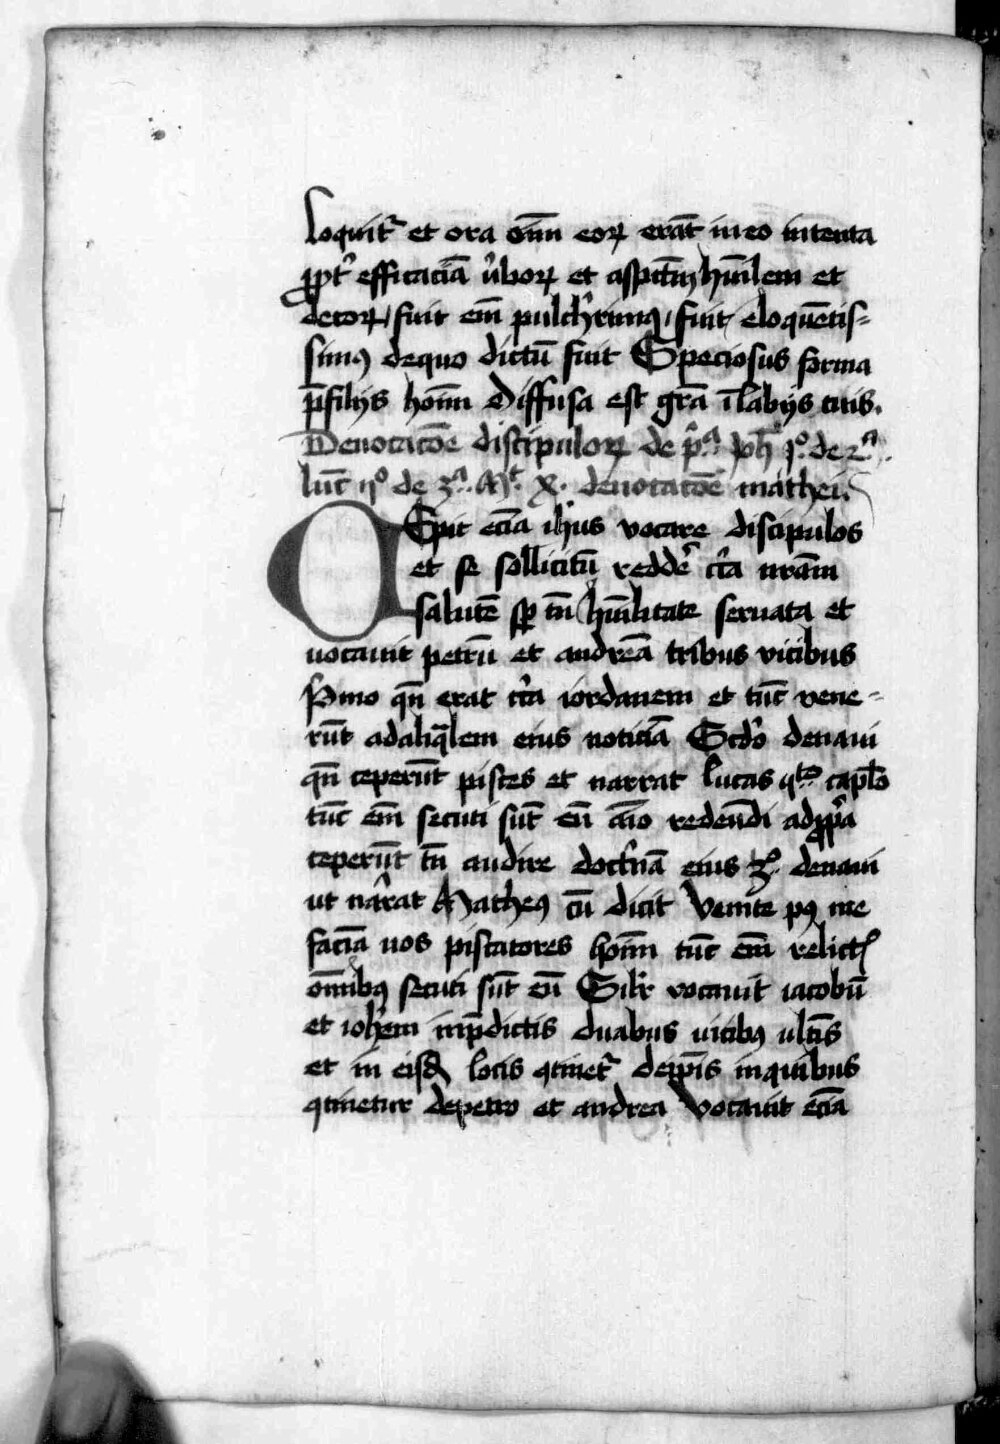 loquit᷑ et ora om̄n eoꝝ erāt in eo intenta
ꝓpt᷑ efficaciā v̉boꝝ et aspctūm hūilem et
decoꝝ fuit em̄ pulch̉rimꝰ fuit eloquētis-
simꝰ de quo dictū fuit Speciosus forma
p̄ filijs hoīm Diffusa est grā ī labijs tuis.
De uocacōe discipuloꝝ de p̉ᵃ Joh̄ ıᵒ. de 2ᵃ.
luc̄ ııᵒ de 3ᵃ. Mᵗ. x. de uocacōe mathei.
CEpit ecīa ihūs vocare discipulos
et se sollicitū redder̉ cc̉a nr̄am
salutē sꝑ tn̄ hūilitate seruata et
uocauit petrū et andreā tribus vicibus
Pimo qn̄ erat cc̉a iordanem et tūc vene-
rūt ad aliq̄lem eius noticiā Scd̉o de naui
qn̄ ceperūt pisces et narrat lucas qᵗᵒ capl̄o
tūc em̄ secuti sūt eū aīo redeūdi ad ꝓp̉a
ceperūt tn̄ audire doct̉nā eius 3ᵒ. de naui
ut nārrat Matheꝰ cū dicit Venite pꝰ me
faciā uos piscatores hoīm tūc em̄ relictꝭ
om̄ibꝰ secuti sūt eū Silr̉ vocauit iacobū
et ioh̄em in p̄dictis duabus uicibꝰ ultīs
et in eisdꝭ locis ꝯtinet᷑ de ip̄is in quibus
ꝯtinetur de petro et andrea Vocauit ecīa